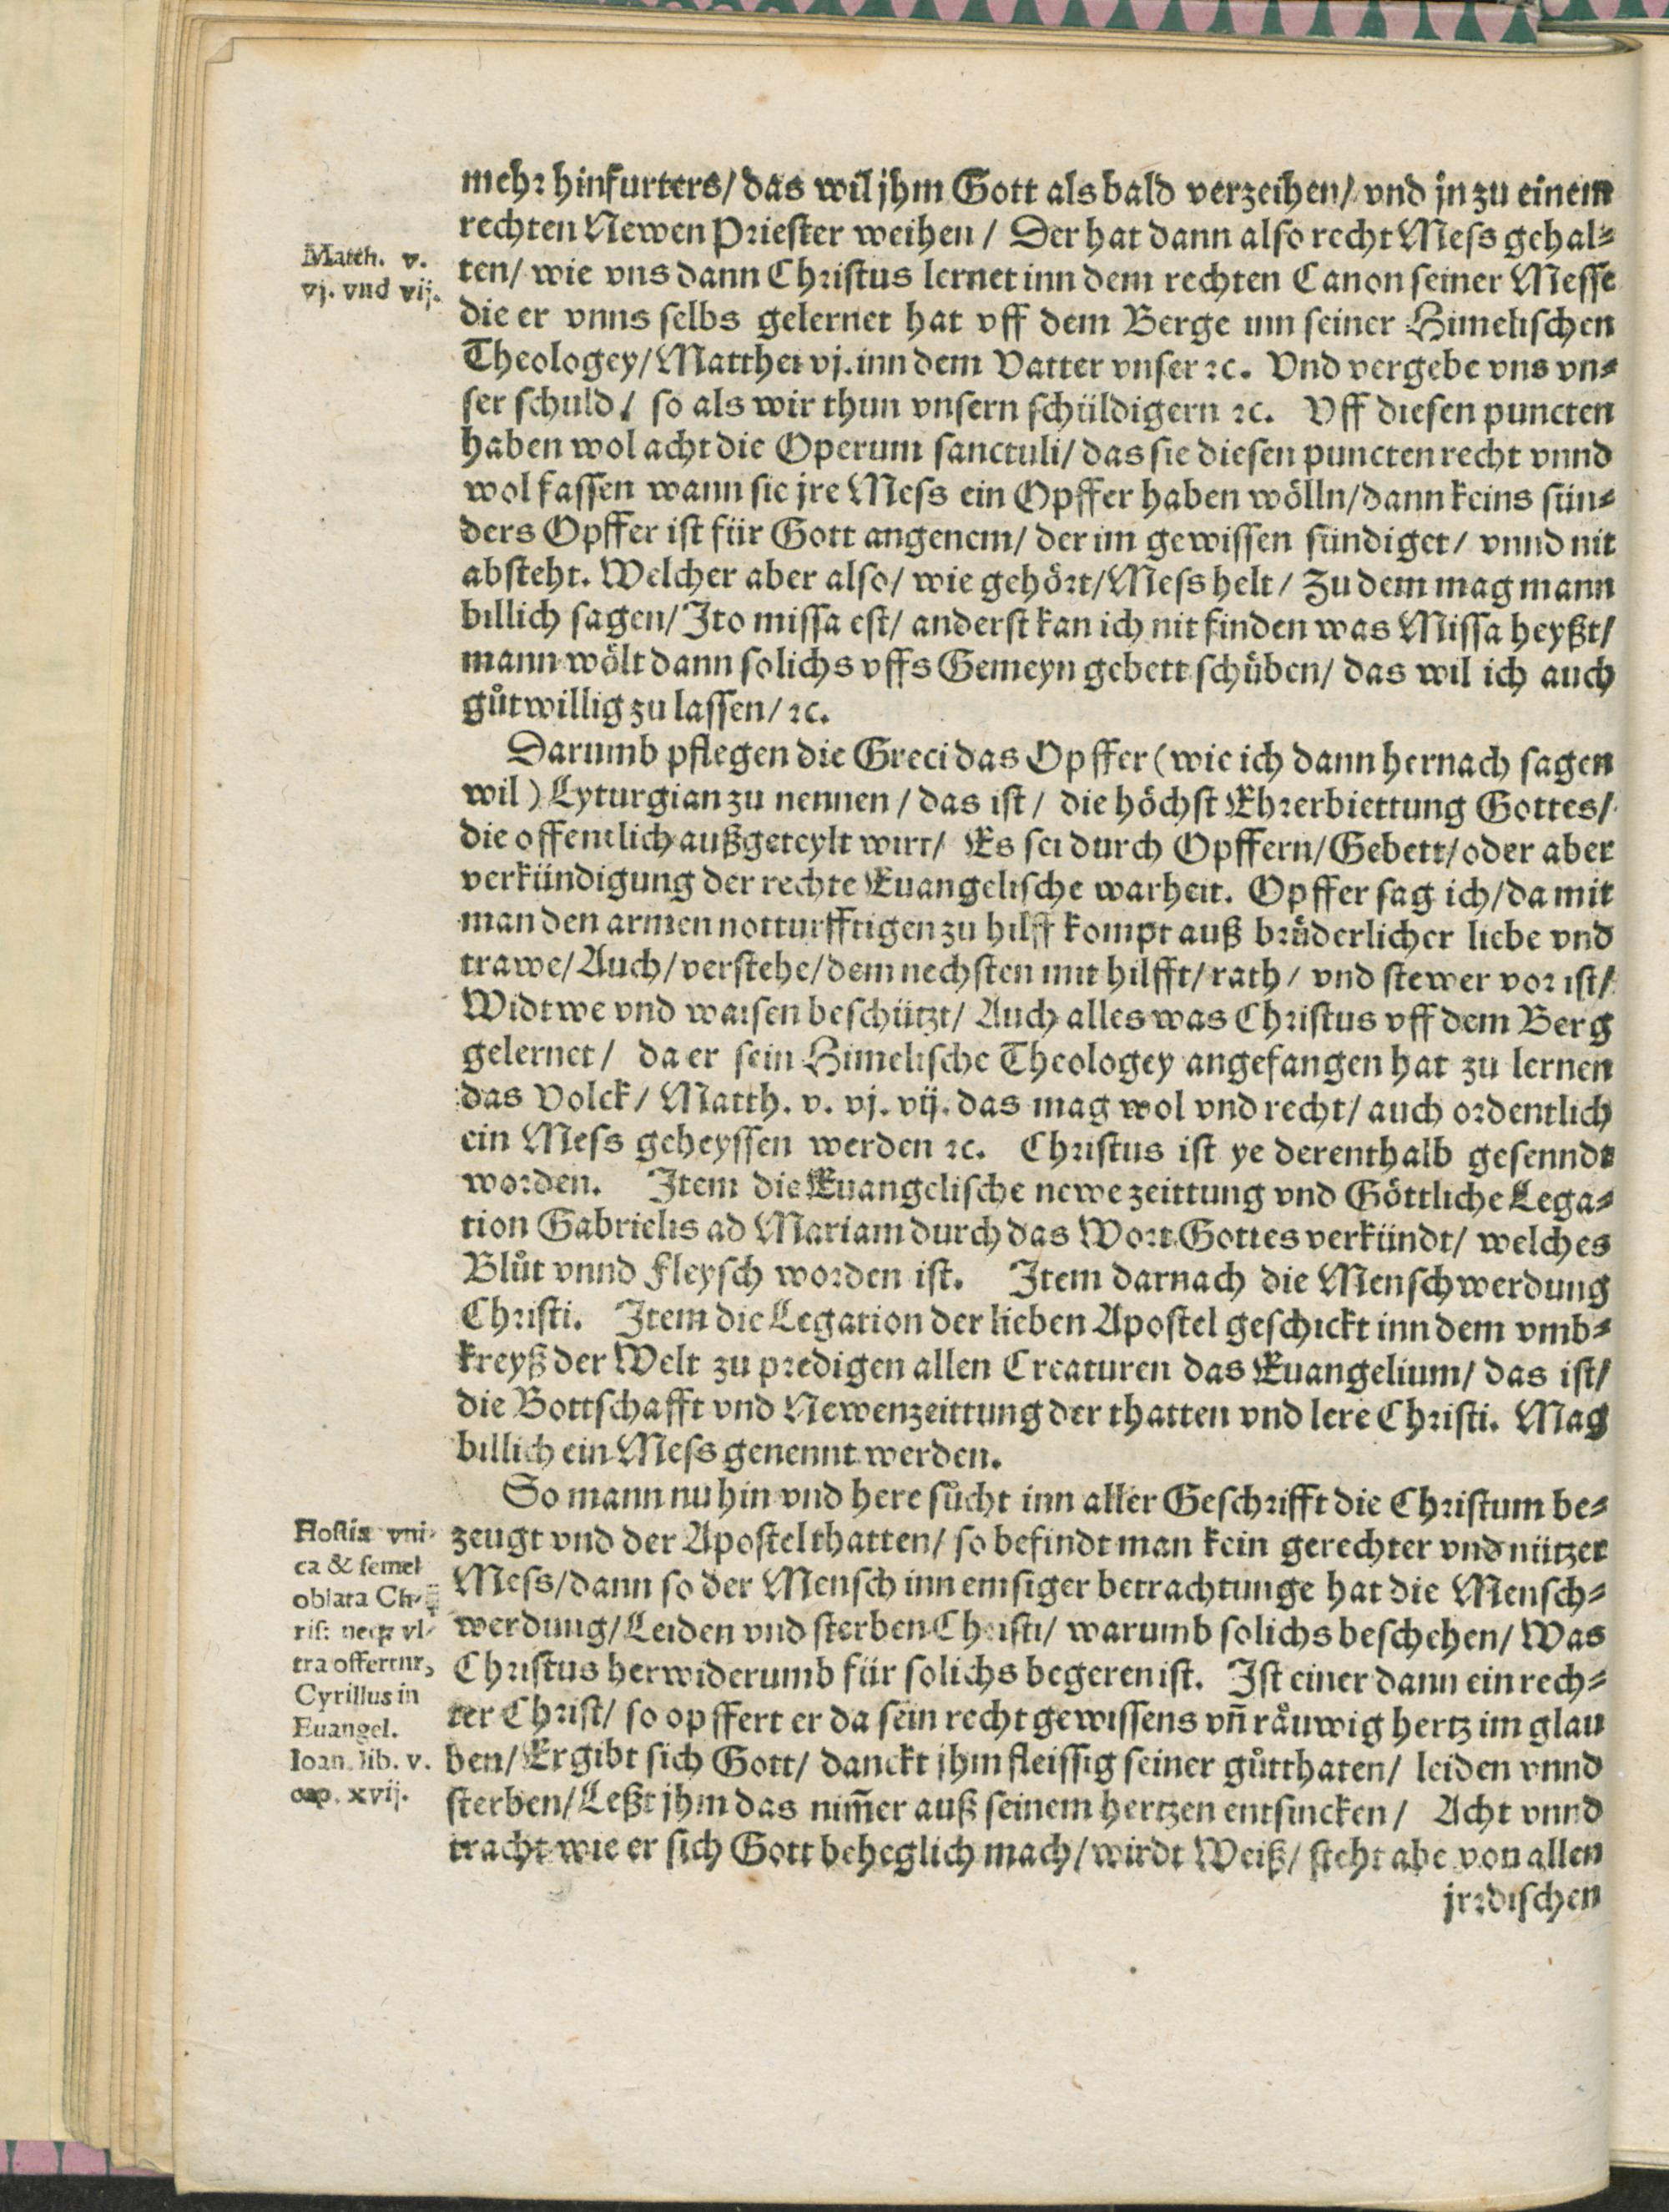 mehr hinfurters/ das wil jhm Gott als bald verzeihen/ vnd jn zu einem
rechten Newen Priester weihen / Der hat dann also recht Mess gehal⸗
Matth. v.
vj. vnd vij.
ten/ wie vns dann Christus lernet inn dem rechten Canon seiner Messe
die er vnns selbs gelernet hat vff dem Berge inn seiner Himelischen
Theologey/ Matthei vj. inn dem Vatter vnser ꝛc. Vnd vergebe vns vn⸗
ser schuld / so als wir thun vnsern schüldigern ꝛc. Vff diesen puncten
haben wol acht die Operum sanctuli/ das sie diesen puncten recht vnnd
wol fassen wann sie jre Mess ein Opffer haben wölln/ dann keins sün⸗
ders Opffer ist für Gott angenem/ der im gewissen sündiget/ vnnd nit
absteht. Welcher aber also/ wie gehört/ Mess helt/ Zu dem mag mann
billich sagen/ Ito missa est/ anderst kan ich nit finden was Missa heyßt/
mann wölt dann solichs vffs Gemeyn gebett schüben/ das wil ich auch
gůtwillig zu lassen/ ꝛc.
Darumb pflegen die Greci das Opffer (wie ich dann hernach sagen
wil) Lyturgian zu nennen / das ist / die höchst Ehrerbiettung Gottes/
die offentlich außgeteylt wirt/ Es sei durch Opffern/ Gebett/ oder aber
verkündigung der rechte Euangelische warheit. Opffer sag ich/ da mit
man den armen notturfftigen zu hilff kompt auß brüderlicher liebe vnd
trawe/ Auch/ verstehe/ dem nechsten mit hilfft/ rath/ vnd stewer vor ist/
Widtwe vnd waisen beschützt/ Auch alles was Christus vff dem Berg
gelernet/ da er sein Himelische Theologey angefangen hat zu lernen
das Volck/ Matth. v. vj. vij. das mag wol vnd recht/ auch ordentlich
ein Mess geheyssen werden ꝛc. Christus ist ye derenthalb gesenndt
worden. Item die Euangelische newe zeittung vnd Göttliche Lega⸗
tion Gabrielis ad Mariam durch das Wort Gottes verkündt/ welches
Blůt vnnd Fleysch worden ist. Item darnach die Menschwerdung
Christi. Item die Legation der lieben Apostel geschickt inn dem vmb⸗
kreyß der Welt zu predigen allen Creaturen das Euangelium/ das ist/
die Bottschafft vnd Newenzeittung der thatten vnd lere Christi. Mag
billich ein Mess genennt werden.
So mann nu hin vnd here sůcht inn aller Geschrifft die Christum be⸗
Hostia vni-
ca & semel
oblata Ch-
rist neqꝫ vl-
tra offertur,
Cyrillus in
Euangel.
Ioan. lib. v.
cap. xvij.
zeugt vnd der Apostel thatten/ so befindt man kein gerechter vnd nützer
Mess/ dann so der Mensch inn emsiger betrachtunge hat die Mensch⸗
werdung/ Leiden vnd sterben Christi/ warumb solichs beschehen/ Was
Christus herwiderumb für solichs begeren ist. Ist einer dann ein rech⸗
ter Christ/ so opffert er da sein recht gewissens vn̄ råuwig hertz im glau
ben/ Ergibt sich Gott/ danckt jhm fleissig seiner gůtthaten/ leiden vnnd
sterben/ Leßt jhm das nim̄er auß seinem hertzen entsincken/ Acht vnnd
tracht wie er sich Gott beheglich mach/ wirdt Weiß/ steht abe von allen
jrrdischen